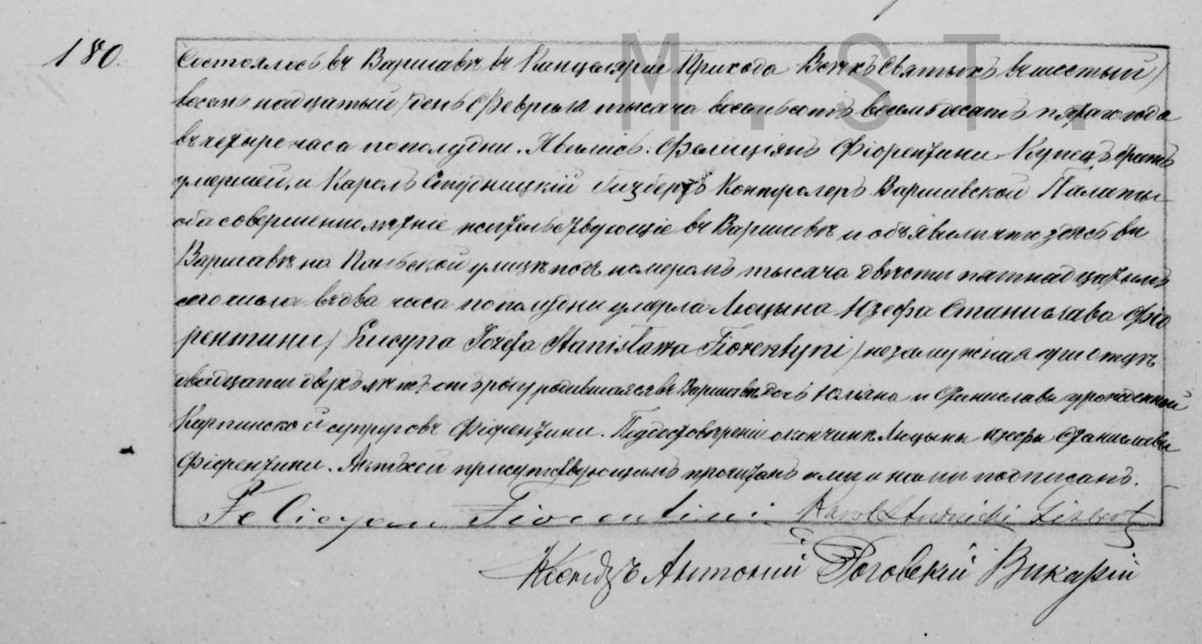 180.
Состоялось въ Варшавѣ въ Канцелярiи Прихода Всѣхъ Святыхъ въ шестый /
восемнадцатый / день Февраля тысяча восемьсотъ восемьдесятъ пятаго года
въ четыре часа пополудни. Явились: Фелицiянъ Фiорентини Купецъ братъ
умершей, и Кароль Студницкiй Гизбертъ Контролеръ Варшавской Палаты
оба совершеннолѣтнiе жительствующiе въ Варшавѣ и объявили что здѣсь въ
Варшавѣ на Паньской улицѣ подъ номеромъ тысяча двѣсти пятнадцатымъ
сего числа въ два часа пополудни умерла Люцына Юзефа Станислава Фiо
рентини / Lucyna Józefa Stanisława Fiorentyni / незамужняя при отцѣ
двадцати двухъ лѣтъ отъ роду родившаяся въ Варшавѣ дочь Юльяна и Станиславы урожденной
Карпинской супруговъ Фiорентини. По удостовѣренiи о кончинѣ Люцыны Юзефы Станиславы
Фiорентини. Актъ сей присутствующимъ прочитанъ ими и нами подписанъ.
Felicyan Fiorentini Karol Studnicki Gizbert
Ксендзъ Антонiй Роговскiй Викарiй
M.ST.